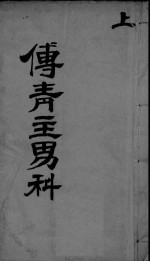 上
傅青主男科